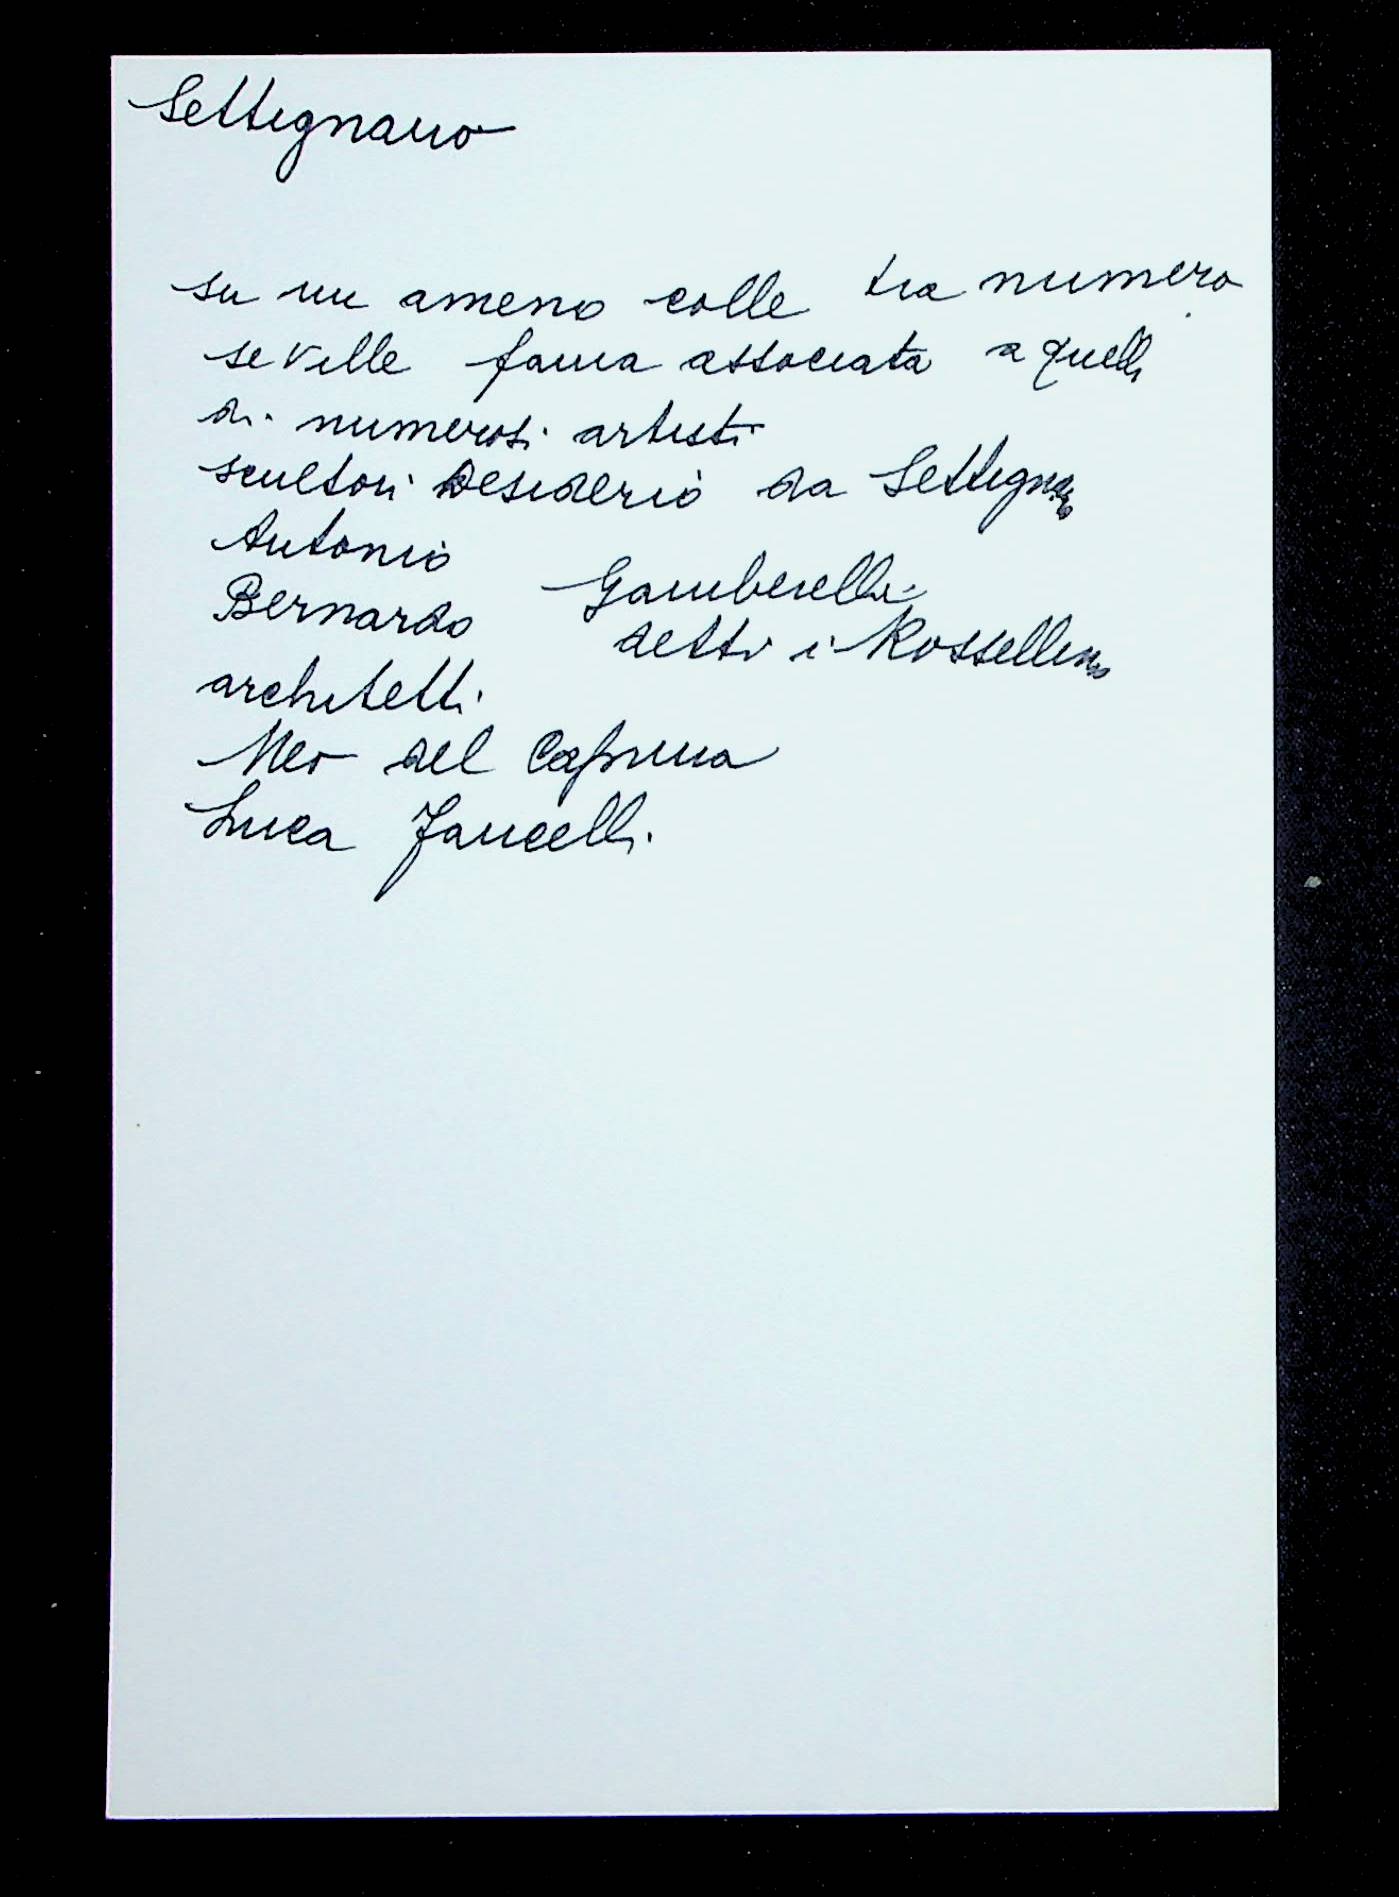 Settignano
su un ameno colle tra numero
se ville fama associata a quella
di numerosi artisti
scultori Desiderio da Settignano
Antonio
Bernardo Gamberelli
detti i Rossellino
architetti
Meo del Caprina
Luca Fancelli